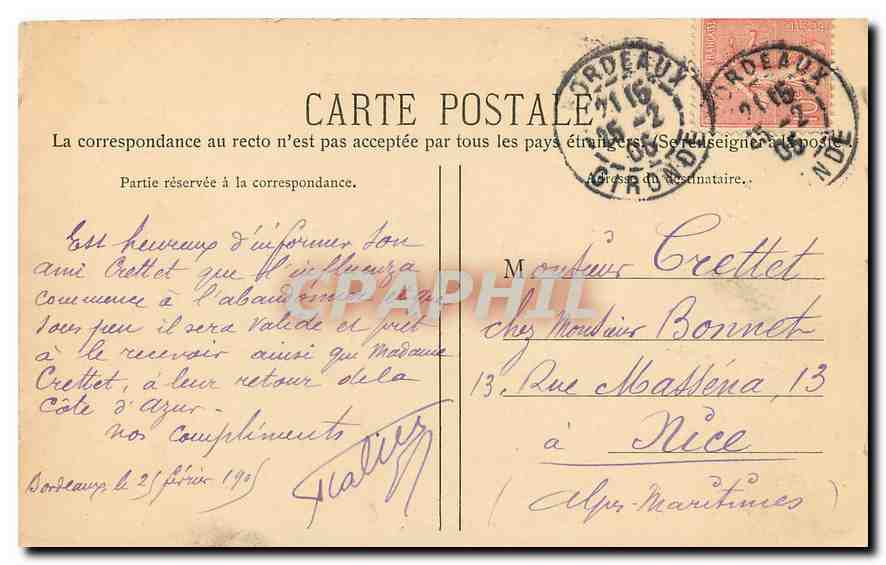 CARTE POSTALE
La correspondance au recto n'est pas acceptée par tous les pays étrangers. (Se renseigner à la poste
Partie réservée à la correspondance.
Adresse du destinataire.
BORDEAUX
21 15
25 -2
05
GIRONDE
BORDEAUX
21 15
25 -2
05
NDE
Est heureux d'informer son
ami Crettet que l'influenza
commence à l'abandonner et que
sous peu il sera valide et prêt
à le recevoir ainsi que Madame
Crettet, à leur retour de la
Côte d'azur.
nos compliments
Bordeaux le 25 février 1905
Monsieur Crettet
chez Monsieur Bonnet
13. Rue Masséna, 13
à Nice
(Alpes-Maritimes)
CPAPHIL